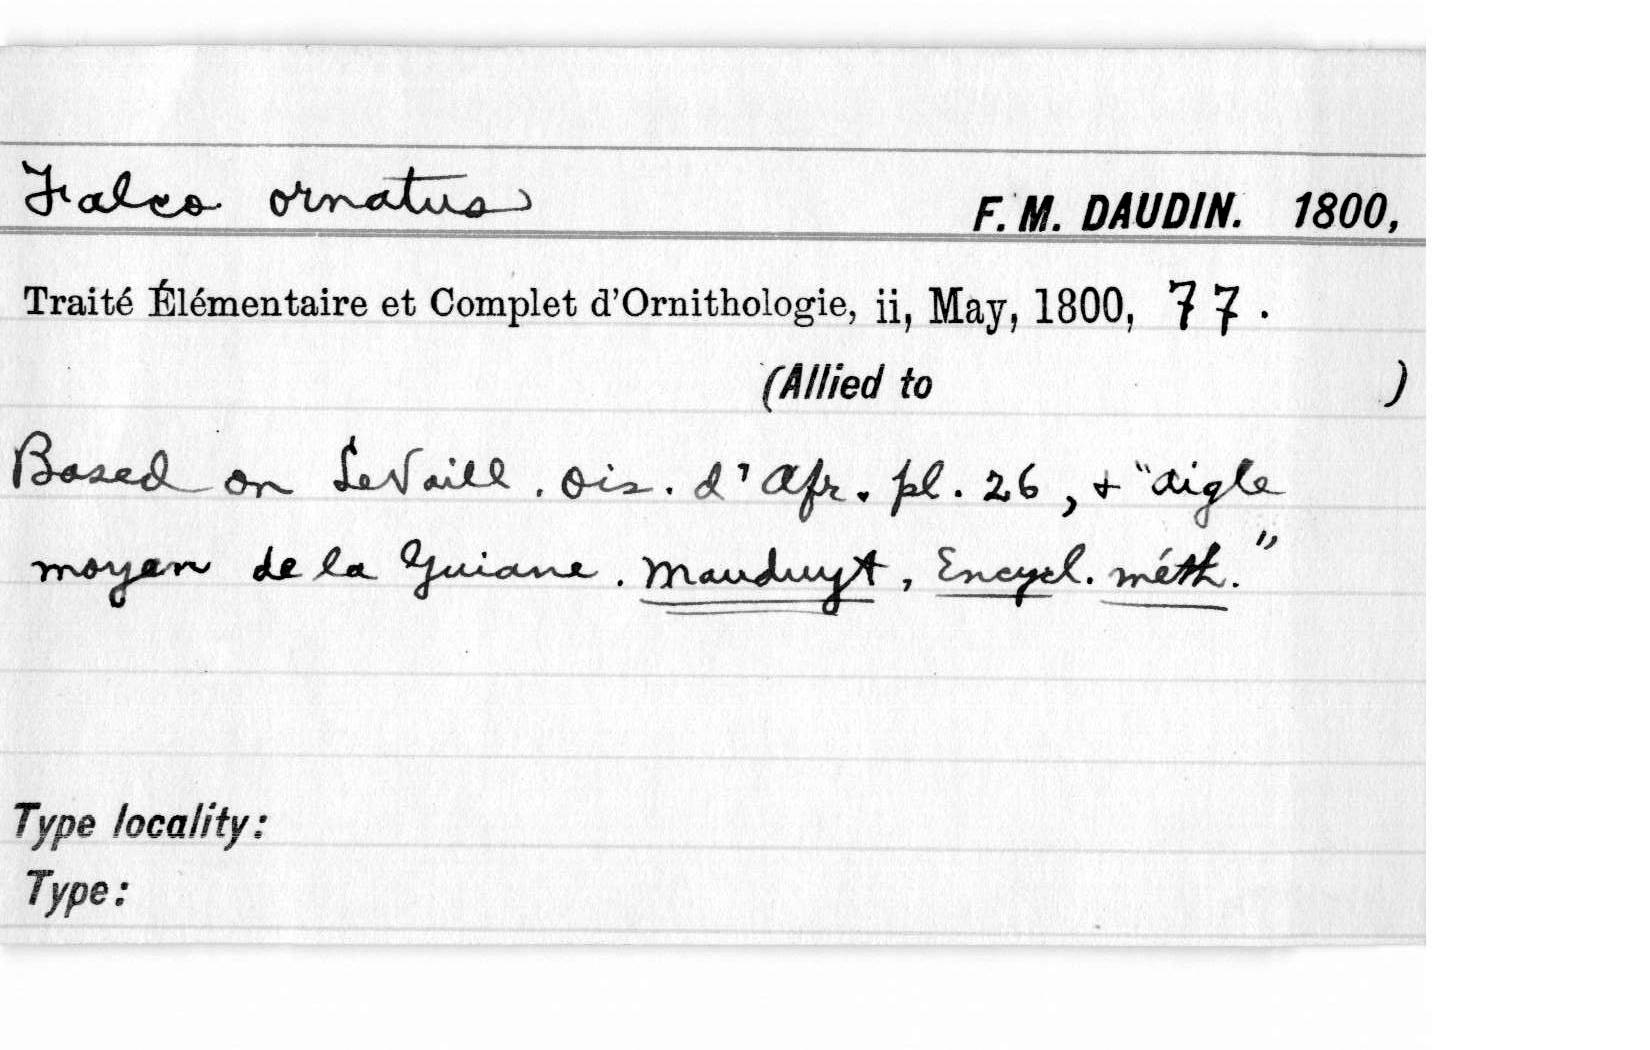 Falco ornatus F. M. DAUDIN. 1800,
Traité Élémentaire et Complet d'Ornithologie, ii, May, 1800, 77.
(Allied to )
Based on LeVaill. Ois. d'Afr. pl. 26, + "aigle
moyen de la Guiane. Mauduyt, Encycl. méth."
Type locality:
Type: